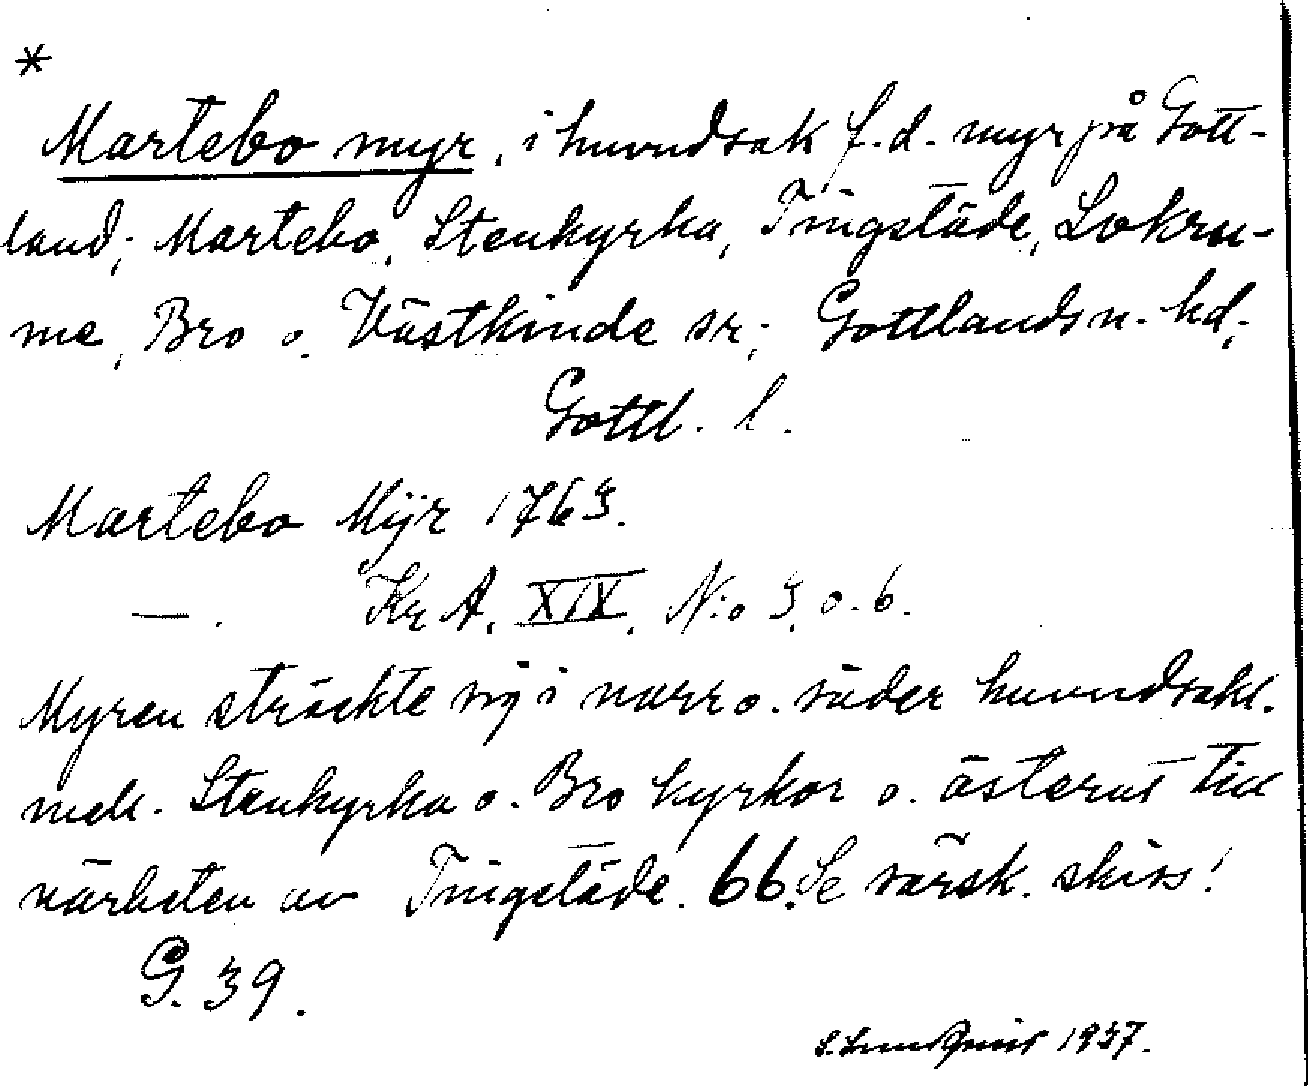 *
Martebo myr, i huvudsak f.d. myr på Gott-
land; Martebo, Stenkyrka, Tingstäde, Lokru-
me, Bro o. Västkinde sr; Gottlands n. hd;
Gottl. l.
Martebo Mÿr 1763.
—. Kr A. XIX. N:o 3. o. 6.
Myren sträckte sig i norr o. söder huvudsakl.
mell. Stenkyrka o. Bro kyrkor o. österut till
närheten av Tingstäde. 66. Se särsk. skiss!
G. 39.
S. Lundquist 1937.